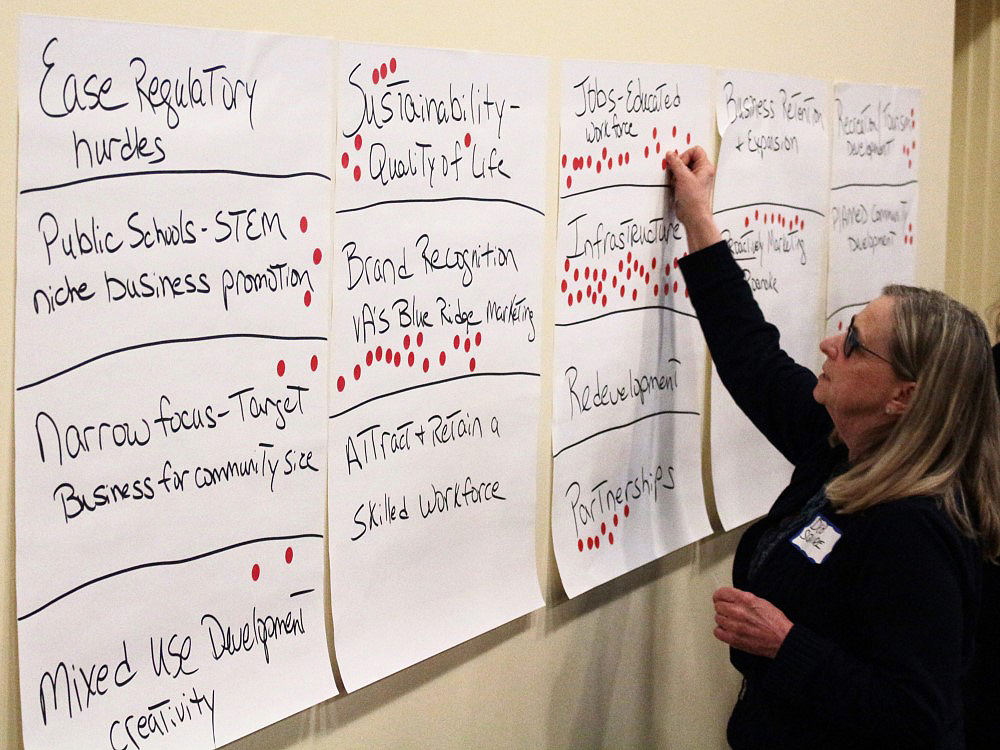 Ease Regulatory
hurdles
Public Schools - STEM
niche business promotion
Narrow focus - Target
Business for community size
Mixed Use Development
creativity
Sustainability -
Quality of Life
Brand Recognition
VA's Blue Ridge Marketing
Attract + Retain a
Skilled Workforce
Jobs - Educated
workforce
Infrastructure
Redevelopment
Partnerships
Business Retention
+ Expansion
Proactively Marketing
Roanoke
Recreation / Tourism
Development
Planned Community
Development